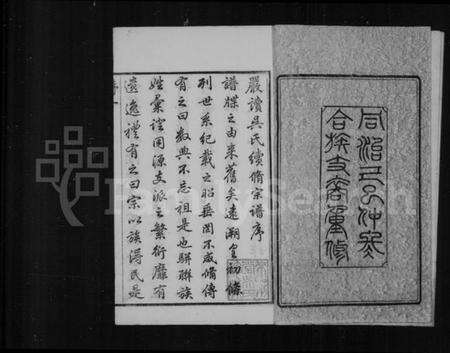 同治五年仲冬
合族支裔重修
嚴瀆吳氏續脩宗譜序
譜牒之由來舊矣遠溯皇初條
列世系紀載之昭垂罔不咸備傳
有之曰數典不忘祖是也聯族
姓彙諠同源支派之繁衍靡有
遺逸禮有之曰宗以族得民是
FamilySearch